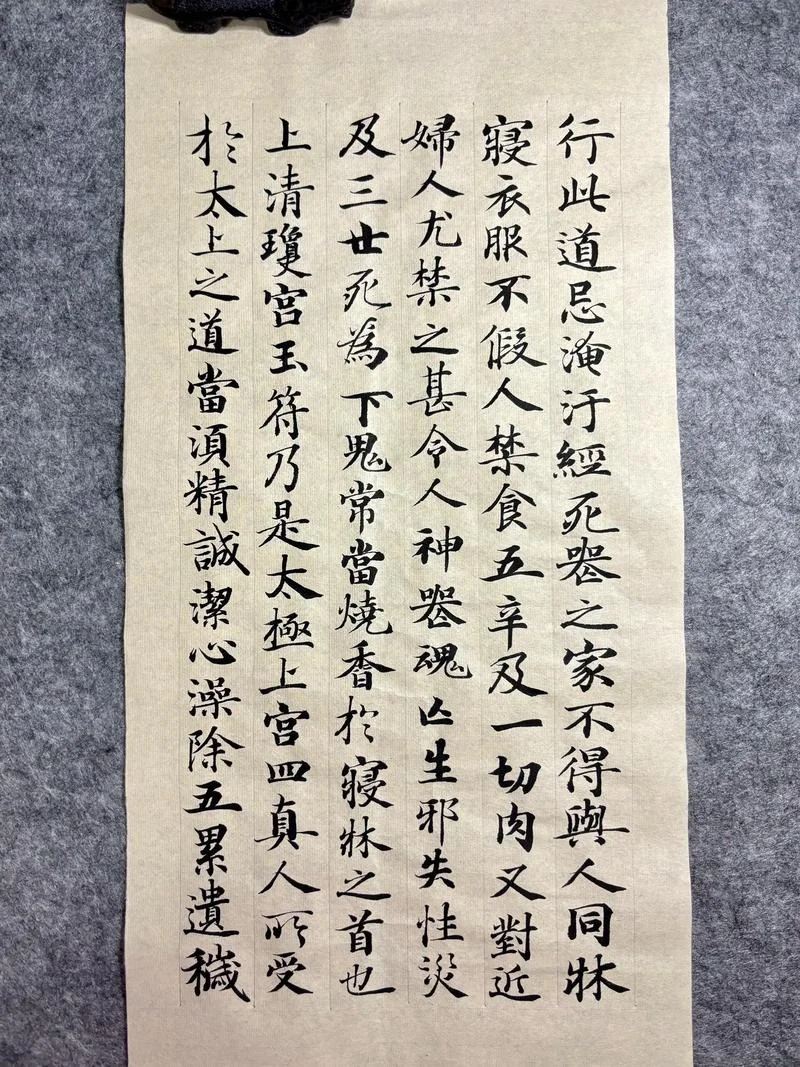 行此道忌淹汙經死喪之家不得與人同牀
寢衣服不假人禁食五辛及一切肉又對近
婦人尤禁之甚令人神喪魂亡生邪失性災
及三世死為下鬼常當燒香於寢牀之首也
上清瓊宮玉符乃是太極上宮四真人所受
於太上之道當須精誠潔心澡除五累遺穢